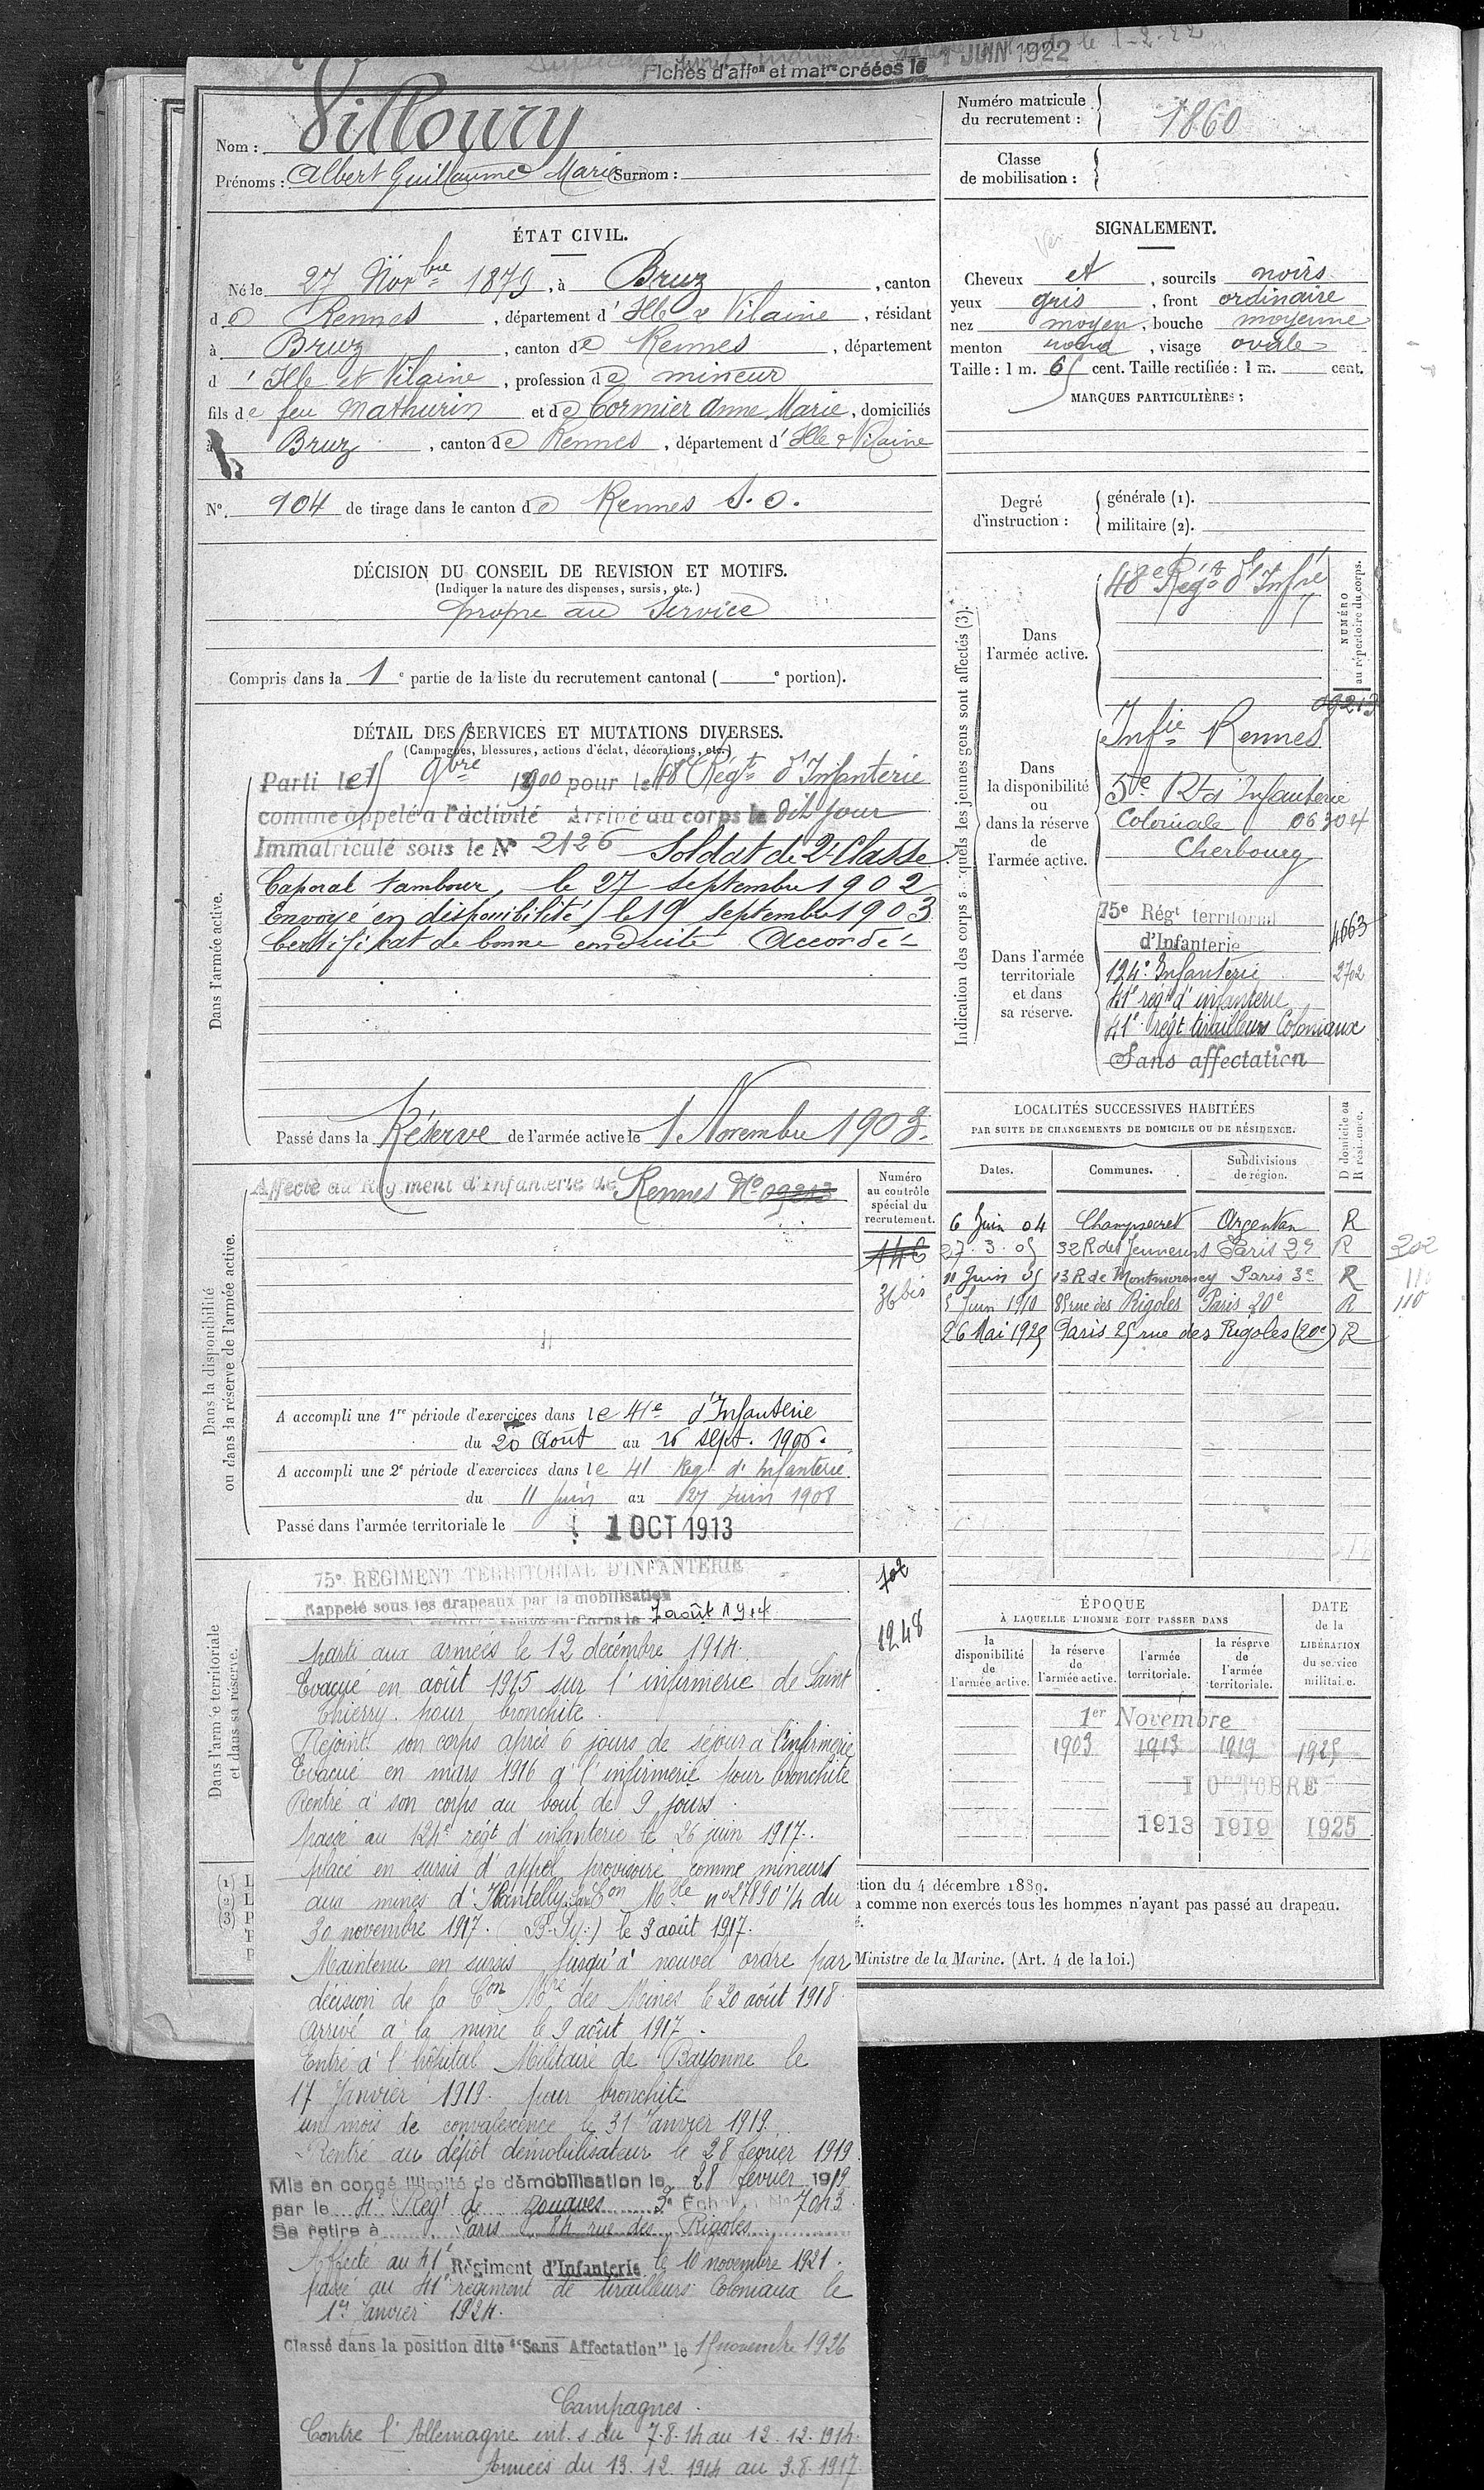 Fiches d'affon et matre créées le 1 JUIN 1922
Nom : Villoury
Prénoms : Albert Guillaume Marie Surnom :
ÉTAT CIVIL.
Né le 27 Novbre 1879, à Bruz, canton
de Rennes, département d'Ille & Vilaine, résidant
à Bruz, canton de Rennes, département
d'Ille et Vilaine, profession de mineur
fils de feu Mathurin et de Cormier Anne Marie, domiciliés
à Bruz, canton de Rennes, département d'Ille & Vilaine
No. 904 de tirage dans le canton de Rennes S.O.
DÉCISION DU CONSEIL DE REVISION ET MOTIFS.
(Indiquer la nature des dispenses, sursis, etc.)
propre au Service
Compris dans la 1e partie de la liste du recrutement cantonal ( e portion).
DÉTAIL DES SERVICES ET MUTATIONS DIVERSES.
(Campagnes, blessures, actions d'éclat, décorations, etc.)
Dans l'armée active.
Parti le 15 9bre 1900 pour le 48e Régt d'Infanterie
comme appelé à l'activité Arrivé au corps le dit jour
Immatriculé sous le No 2126 Soldat de 2e Classe
Caporal tambour, le 27 septembre 1902
Envoyé en disponibilité le 19 septembre 1903
Certificat de bonne conduite Accordé
Passé dans la Réserve de l'armée active le 1 Novembre 1903.
Dans la disponibilité
ou dans la réserve de l'armée active.
Affecté au Régiment d'Infanterie de Rennes No 09213
Numéro
au contrôle
spécial du
recrutement.
36 bis
A accompli une 1re période d'exercices dans le 41e d'Infanterie
du 20 Août au 16 sept. 1906.
A accompli une 2e période d'exercices dans le 41 Regt d'infanterie
du 11 Juin au 27 Juin 1908
Passé dans l'armée territoriale le 1 OCT 1913
Dans l'armée territoriale
et dans sa réserve.
75e RÉGIMENT TERRITORIAL D'INFANTERIE
Rappelé sous les drapeaux par la mobilisation
Arrivé au Corps le 7 août 1914
1248
parti aux armées le 12 décembre 1914.
Evacué en août 1915 sur l'infirmerie de Saint
Thierry pour bronchite.
Rejoint son corps après 6 jours de séjour à l'infirmerie
Evacué en mars 1916 à l'infirmerie pour bronchite
Rentré à son corps au bout de 9 jours.
passé au 124e régt d'infanterie le 26 juin 1917.
placé en sursis d'appel provisoire comme mineurs
aux mines d' no 27890 1/4 du
30 novembre 1917. le 3 août 1917.
Maintenu en sursis jusqu'à nouvel ordre par
décision de la Con Mre des Mines le 20 août 1918.
Arrivé à la mine le 9 août 1917.
Entré à l'hôpital Militaire de Bayonne le
17 Janvier 1919. pour bronchite
un mois de convalescence le 31 Janvier 1919.
Rentré au dépôt démobilisateur le 28 février 1919
Mis en congé illimité de démobilisation le 28 février 1919
par le 4e Régt de zouaves 3e Échelon No 7043
Se retire à Paris 84 rue des Rigoles
Affecté au 41e Régiment d'Infanterie le 10 novembre 1921.
passé au 41e régiment de tirailleurs Coloniaux le
1er Janvier 1924.
Classé dans la position dite "Sans Affectation" le 15 novembre 1926
Campagnes.
Contre l'Allemagne int. s. du 7.8.14 au 12.12.1914.
Armées du 13.12.1914 au 3.8.1917
Numéro matricule
du recrutement : 1860
Classe
de mobilisation :
SIGNALEMENT.
Cheveux et, sourcils noirs
yeux gris, front ordinaire
nez moyen, bouche moyenne
menton rond, visage ovale
Taille : 1 m. 65 cent. Taille rectifiée : 1 m. cent.
MARQUES PARTICULIÈRES :
Degré
d'instruction :
générale (1).
militaire (2).
Indication des corps auxquels les jeunes gens sont affectés (3).
NUMÉRO
au répertoire du corps.
Dans
l'armée active.
48e Régt d'Infrie
09213
Dans
la disponibilité
ou
dans la réserve
de
l'armée active.
Infie Rennes
5e Rt d'Infanterie
Coloniale 06304
Cherbourg
Dans l'armée
territoriale
et dans
sa réserve.
75e Régt territorial
d'Infanterie 4663
124e Infanterie 2702
41e regt d'infanterie
41e régt tirailleurs Coloniaux
Sans affectation
LOCALITÉS SUCCESSIVES HABITÉES
PAR SUITE DE CHANGEMENTS DE DOMICILE OU DE RÉSIDENCE.
Dates. Communes. Subdivisions de région. D domicile ou R résidence.
6 Juin 04 Champsecret Argentan R
27.3.05 32 R des Jeuneurs Paris 2e R 202
11 Juin 05 13 R de Montmorency Paris 3e R
5 Juin 1910 85 rue des Rigoles Paris 20e R 110
26 Mai 1925 Paris 25 rue des Rigoles (20e) R
ÉPOQUE
À LAQUELLE L'HOMME DOIT PASSER DANS
DATE
de la
LIBÉRATION
du service
militaire.
la disponibilité de l'armée active.
la réserve de l'armée active.
l'armée territoriale.
la réserve de l'armée territoriale.
1er Novembre
1903 1913 1919 1925
1 OCTOBRE
1913 1919 1925
(1) L
(2) L
(3) P
ction du 4 décembre 1889.
a comme non exercés tous les hommes n'ayant pas passé au drapeau.
Ministre de la Marine. (Art. 4 de la loi.)